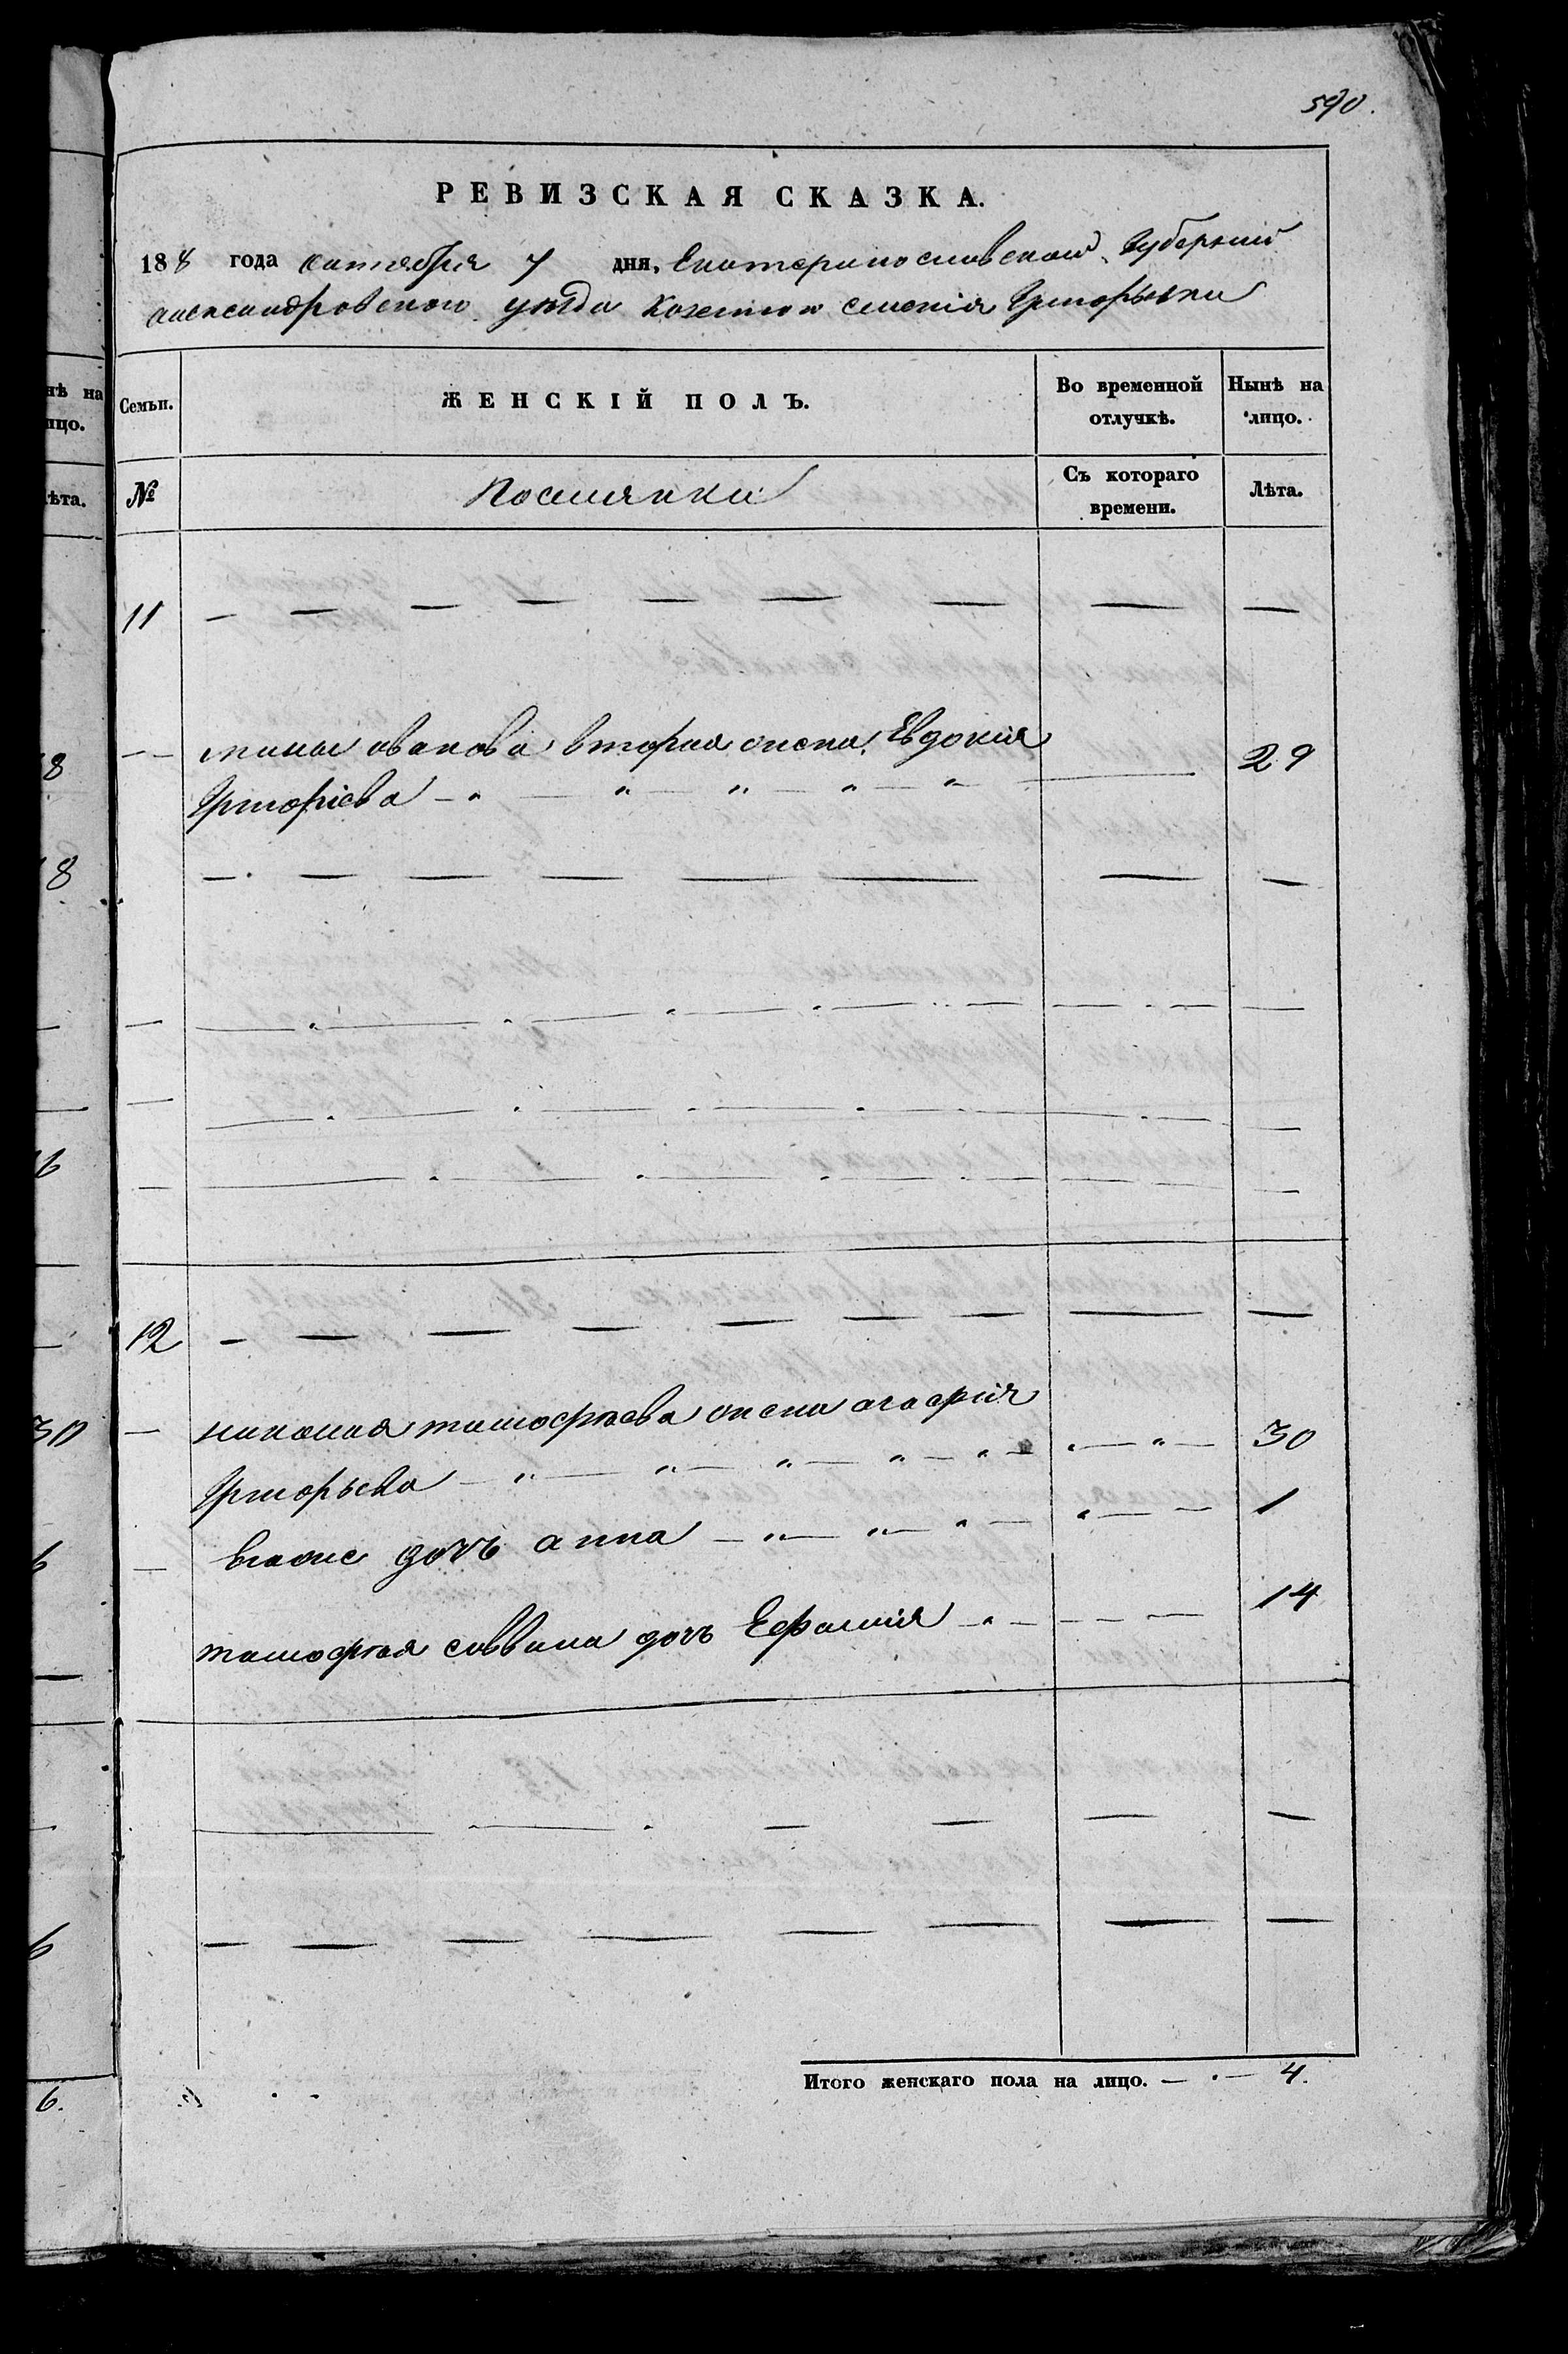 590.
РЕВИЗСКАЯ СКАЗКА.
188 года октября 7 дня, Екатеринославской Губерніи
александровского уезда селенія Григорьевки
нѣ на
лицо.
лѣта.
Семьи.
ЖЕНСКІЙ ПОЛЪ.
Во временной отлучкѣ.
Нынѣ на лицо.
№
Поселянки
Съ котораго времени.
Лѣта.
11 — — — — — — — — —
— ивanoва вторая жена Евдокия
Григоріева — " — " — " — " — " — 29
— — — — — — — —
12 — — — — — — — — —
— николая тимофѣева жена агафия
Григорьева — " — " — " — " — " — 30
— дочь анна — " — " — " — 1
тимофея саввина дочь Ефимия — " — — — — 14
— — — — — — —
— — — — — — — —
Итого женскаго пола на лицо. — · — 4.
8
18
16
30
6
6
6.